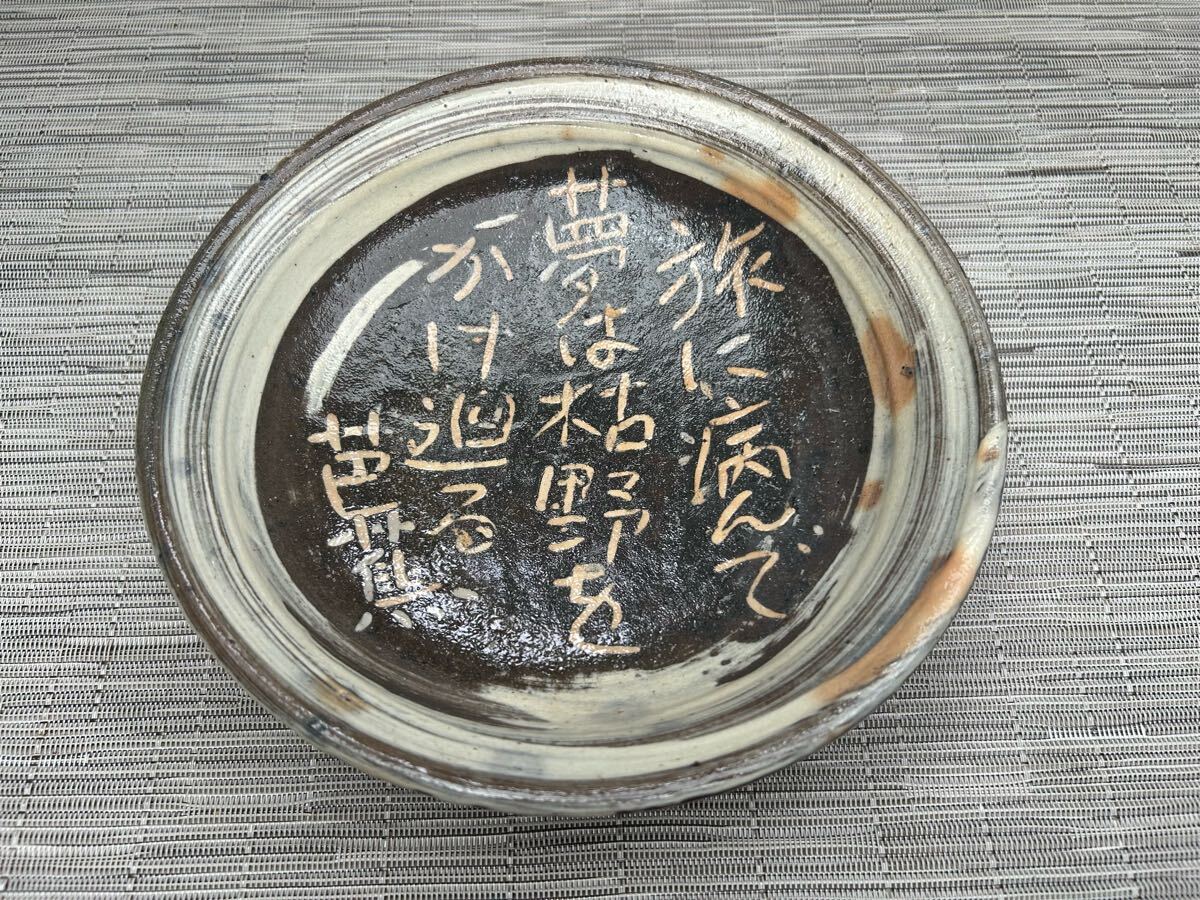 旅に病んで
夢は枯野を
かけ廻る
芭蕉